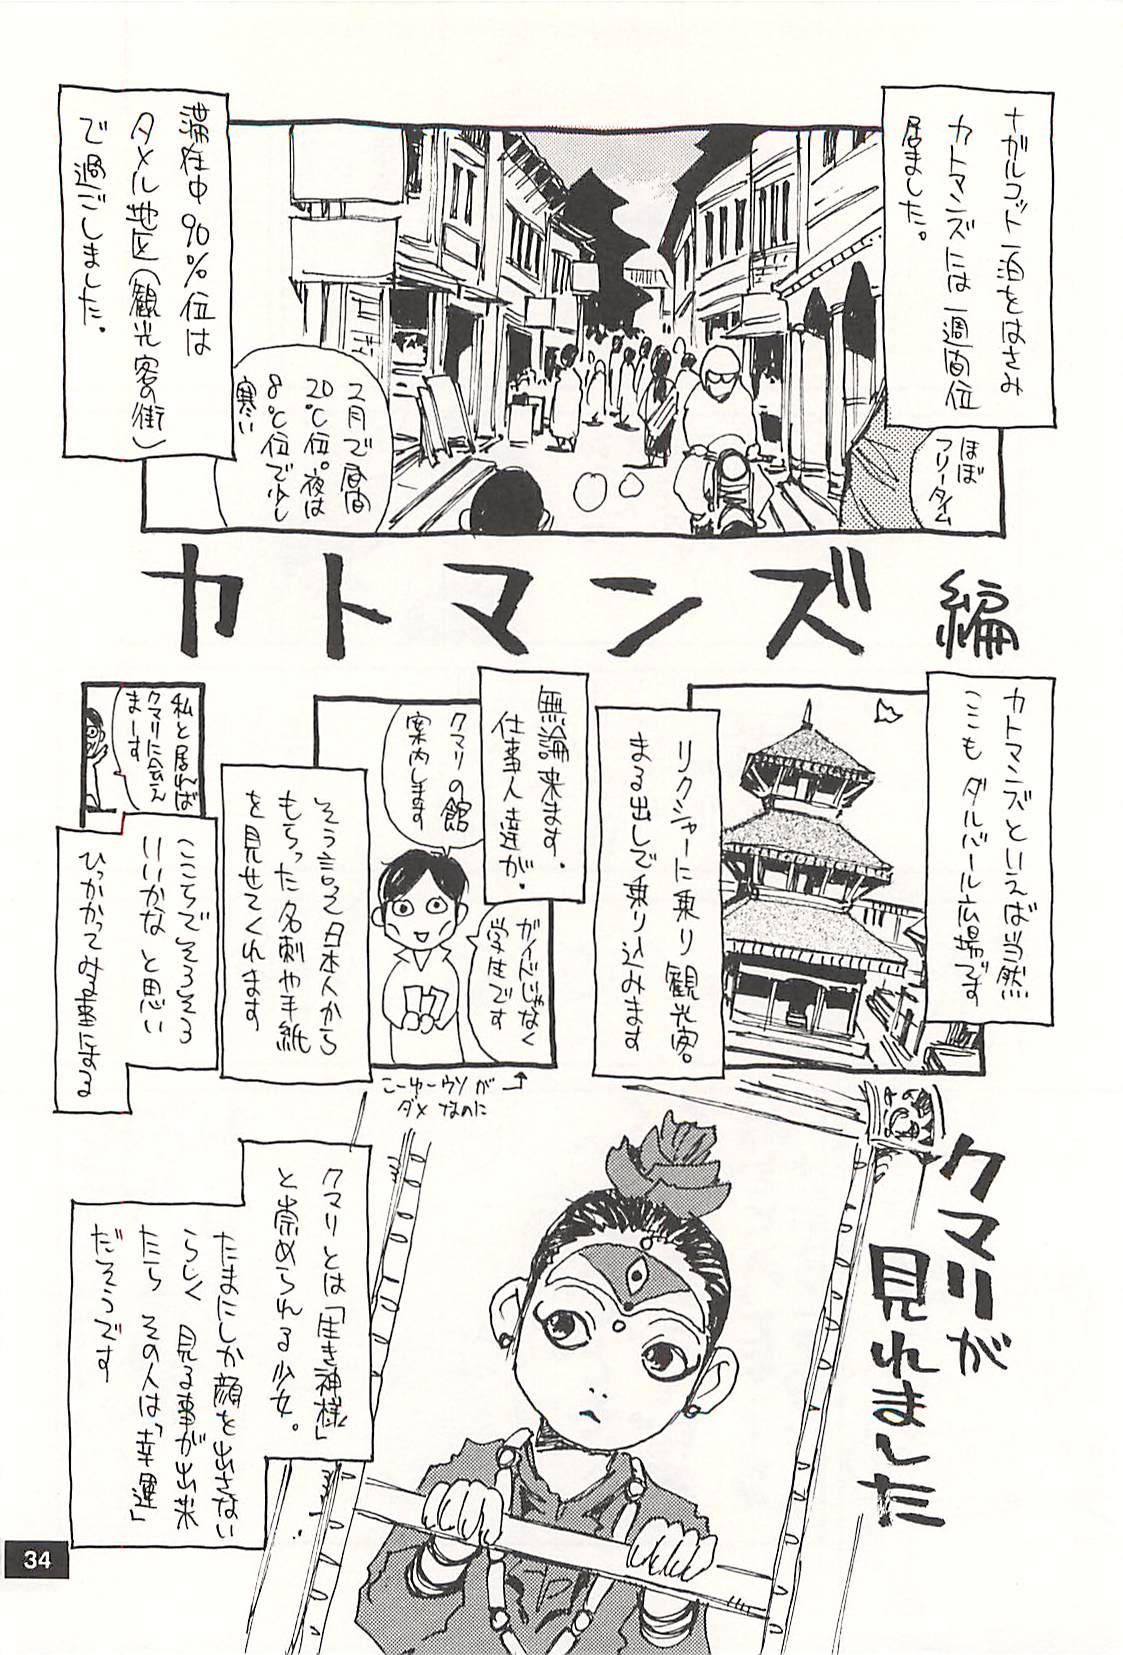 ナガルコット一泊をはさみ
カトマンズには一週間位
居ました。
ほぼ
フリータイム
滞在中90%位は
タメル地区(観光客の街)
で過ごしました。
2月で昼間
20℃位。夜は
8℃位で少し
寒い
カトマンズ編
カトマンズといえば当然
ここもダルバール広場です
リクシャーに乗り観光客。
まる出しで乗り込みます
無論来ます.
仕事人達が.
クマリの館
案内します
ガイドじゃなく
学生です
こーゆーウソが
ダメなのに
そう言って日本人から
もらった名刺や手紙
を見せてくれます
私と居れば
クマリに会え
まーす
ここらでそろそろ
いいかなと思い
ひっかかってみる事にする
クマリが
見れました
クマリとは「生き神様」
と崇められる少女。
たまにしか顔を出さない
らしく見る事が出来
たらその人は「幸運」
だそうです
34